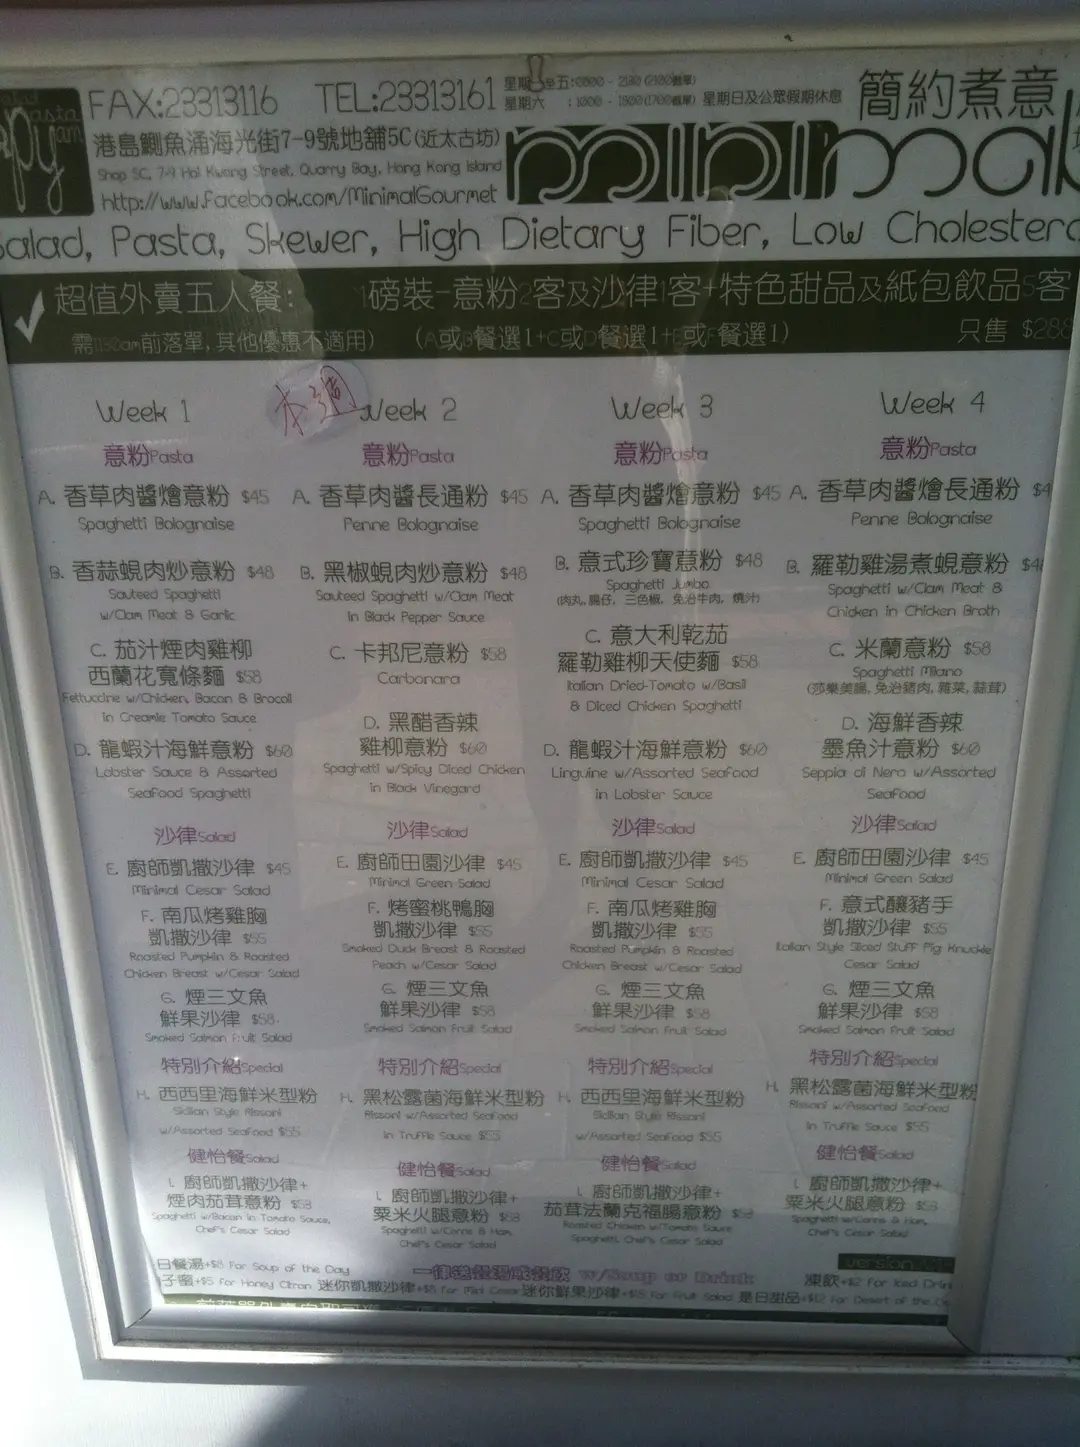 FAX:23313116 TEL:23313161 星期一至五:0800 - 2130 (2100截單)
星期六 :1000 - 1800(1700截單) 星期日及公眾假期休息
簡約煮意
港島鰂魚涌海光街7-9號地舖5C(近太古坊)
Shop 5C, 7-9 Hoi Kwong Street, Quarry Bay, Hong Kong Island
http://www.facebook.com/MinimalGourmet
minimal
Salad, Pasta, Skewer, High Dietary Fiber, Low Cholestero
超值外賣五人餐: 1磅裝-意粉2客及沙律1客+特色甜品及紙包飲品5客
需1130am前落單,其他優惠不適用) (A或B餐選1+C或D餐選1+E或F餐選1) 只售 $288
本週
Week 1
意粉Pasta
A. 香草肉醬燴意粉 $45
Spaghetti Bolognaise
B. 香蒜蜆肉炒意粉 $48
Sauteed Spaghetti
w/Clam Meat & Garlic
C. 茄汁煙肉雞柳
西蘭花寬條麵 $58
Fettuccine w/Chicken, Bacon & Brocoli
in Creamie Tomato Sauce
D. 龍蝦汁海鮮意粉 $60
Lobster Sauce & Assorted
Seafood Spaghetti
沙律Salad
E. 廚師凱撒沙律 $45
Minimal Cesar Salad
F. 南瓜烤雞胸
凱撒沙律 $55
Roasted Pumpkin & Roasted
Chicken Breast w/Cesar Salad
G. 煙三文魚
鮮果沙律 $58
Smoked Salmon Fruit Salad
特別介紹Special
H. 西西里海鮮米型粉
Sicilian Style Rissoni
w/Assorted Seafood $55
健怡餐Salad
I. 廚師凱撒沙律+
煙肉茄茸意粉 $58
Spaghetti w/Bacon in Tomato Sauce,
Chef's Cesar Salad
Week 2
意粉Pasta
A. 香草肉醬長通粉 $45
Penne Bolognaise
B. 黑椒蜆肉炒意粉 $48
Sauteed Spaghetti w/Clam Meat
in Black Pepper Sauce
C. 卡邦尼意粉 $58
Carbonara
D. 黑醋香辣
雞柳意粉 $60
Spaghetti w/Spicy Diced Chicken
in Black Vinegard
沙律Salad
E. 廚師田園沙律 $45
Minimal Green Salad
F. 烤蜜桃鴨胸
凱撒沙律 $55
Smoked Duck Breast & Roasted
Peach w/Cesar Salad
G. 煙三文魚
鮮果沙律 $58
Smoked Salmon Fruit Salad
特別介紹Special
H. 黑松露菌海鮮米型粉
Rissoni w/Assorted Seafood
in Truffle Sauce $55
健怡餐Salad
I. 廚師凱撒沙律+
粟米火腿意粉 $58
Spaghetti w/Corns & Ham,
Chef's Cesar Salad
Week 3
意粉Pasta
A. 香草肉醬燴意粉 $45
Spaghetti Bolognaise
B. 意式珍寶意粉 $48
Spaghetti Jumbo
(肉丸, 腸仔, 三色椒, 免治牛肉, 燒汁)
C. 意大利乾茄
羅勒雞柳天使麵 $58
Italian Dried-Tomato w/Basil
& Diced Chicken Spaghetti
D. 龍蝦汁海鮮意粉 $60
Linguine w/Assorted Seafood
in Lobster Sauce
沙律Salad
E. 廚師凱撒沙律 $45
Minimal Cesar Salad
F. 南瓜烤雞胸
凱撒沙律 $55
Roasted Pumpkin & Roasted
Chicken Breast w/Cesar Salad
G. 煙三文魚
鮮果沙律 $58
Smoked Salmon Fruit Salad
特別介紹Special
H. 西西里海鮮米型粉
Sicilian Style Rissoni
w/Assorted Seafood $55
健怡餐Salad
I. 廚師凱撒沙律+
茄茸法蘭克福腸意粉 $58
Roasted Chicken w/Tomato Sauce
Spaghetti, Chef's Cesar Salad
Week 4
意粉Pasta
A. 香草肉醬燴長通粉 $4
Penne Bolognaise
B. 羅勒雞湯煮蜆意粉 $4
Spaghetti w/Clam Meat &
Chicken in Chicken Broth
C. 米蘭意粉 $58
Spaghetti Milano
(莎樂美腸, 免治豬肉, 雜菜, 蒜茸)
D. 海鮮香辣
墨魚汁意粉 $60
Seppia di Nero w/Assorted
Seafood
沙律Salad
E. 廚師田園沙律 $45
Minimal Green Salad
F. 意式釀豬手
凱撒沙律 $55
Italian Style Sliced Stuff Pig Knuckle
Cesar Salad
G. 煙三文魚
鮮果沙律 $58
Smoked Salmon Fruit Salad
特別介紹Special
H. 黑松露菌海鮮米型粉
Rissoni w/Assorted Seafood
in Truffle Sauce $55
健怡餐Salad
I. 廚師凱撒沙律+
粟米火腿意粉 $58
Spaghetti w/Corns & Ham,
Chef's Cesar Salad
日餐湯+$8 For Soup of the Day 一律送餐湯或餐飲 w/Soup or Drink 凍飲+$2 For Iced Drin
子蜜+$5 for Honey Citron 迷你凱撒沙律+$8 for Mini Cesar 迷你鮮果沙律+$15 For Fruit Salad 是日甜品+$12 For Desert of the D